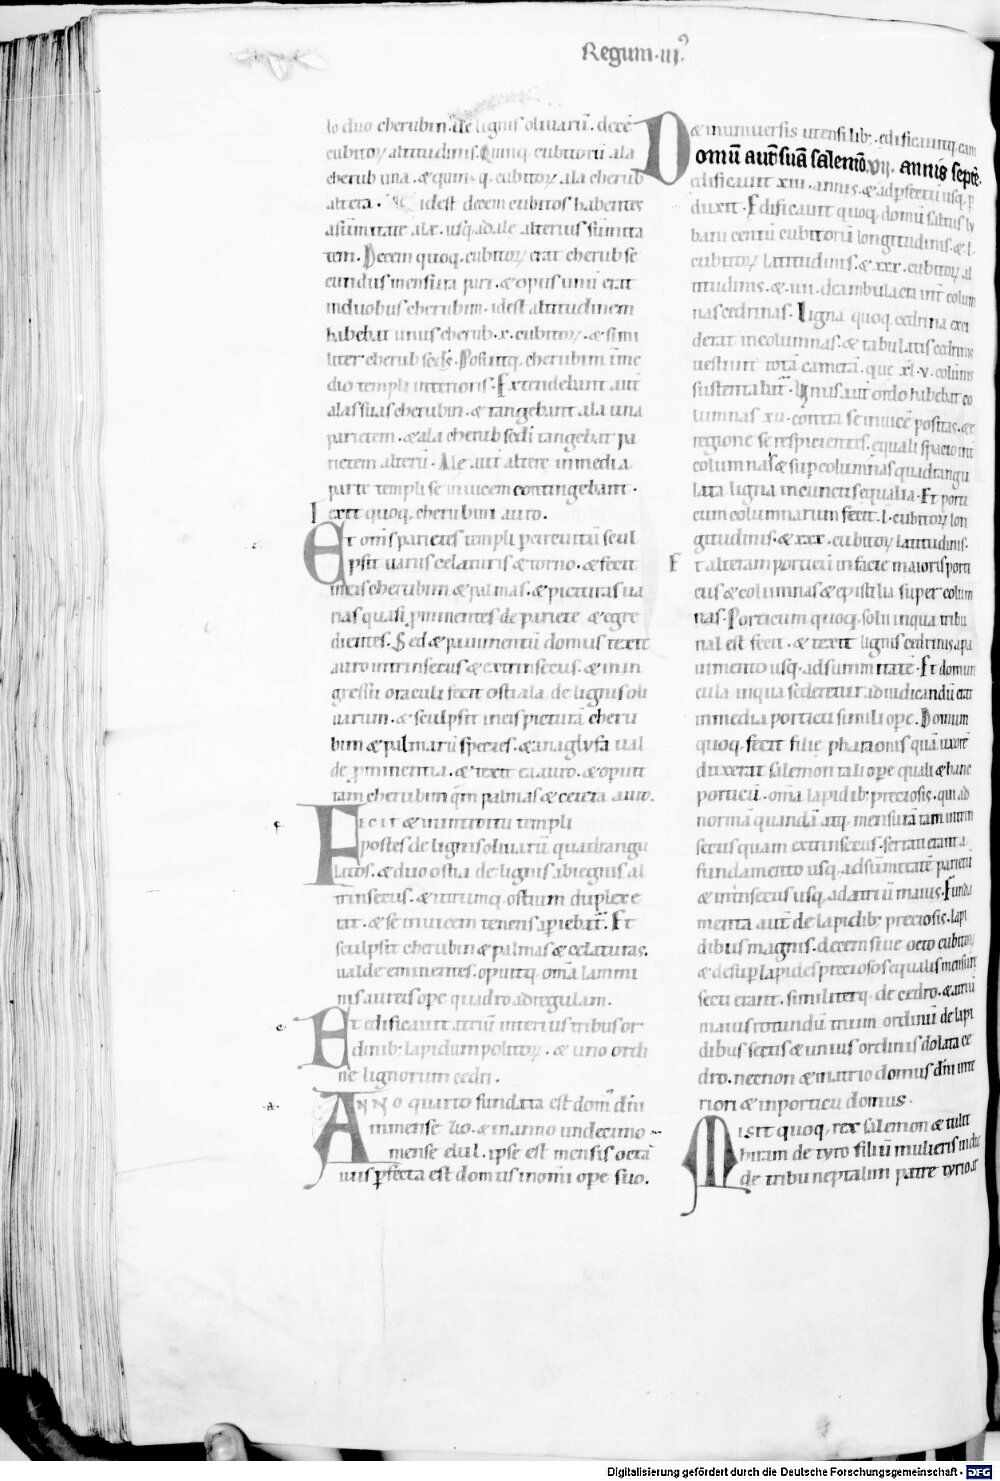 Regum·iij⁹
lo duo cherubin. de lignis olivarū. decē
cubitoꝝ altitudinis. Quinq; cubitorū ala
cherub una. & quinq; cubitoꝝ ala cherub
altera. idest decem cubitos habentes
a sūmitate alæ. usq; ad alæ alterius sūmita
tem. Decem quoq; cubitoꝝ erat cherub se
cundus mensura pari. & opus unū erat
in duobus cherubim. idest altitudinem
habebat unus cherub .x. cubitoꝝ. & simi
liter cherub secđs. Posuitq; cherubim in me
dio templi interioris. Extendebant aut̄
alas suas cherubin. & tangebant ala una
parietem. & ala cherub sedi tangebat pa
rietem alterū. Ale aut̄ altere in media
parte templi se invicem contingebant.
Texit quoq; cherubim auro.
Et om̄s parietes templi p circuitū scul
psit variis celaturis & torno. & fecit
in eis cherubim & palmas. & picturas va
rias quasi prominentes de pariete & egre
dientes. Sed & pavimentū domus texit
auro intrinsecus & extrinsecus. & in in
gressu oraculi fecit ostiola de lignis oli
varum. & sculpsit in eis picturā cheru
bim & palmarū species. & anaglyfa val
de prominentia. & texit ea auro. & operu
it tam cherubim qm̄ palmas & cetera auro.
Fecit & in introitu templi
postes de lignis olivarū quadrangu
latos. & duo ostia de lignis abiegnis al
trinsecus. & utrunq; ostium duplex e
rat. & se invicem tenens apiebat̄. Et
sculpsit cherubin & palmas & celaturas.
valde eminentes. opuitq; om̄a lammi
nis aureis ope quadro ad regulam.
Et edificavit atriū interius tribus or
dinib; lapidum politoꝝ. & uno ordi
ne lignorum cedri.
Anno quarto fundata est dom' dn̄i
in mense zio. & in anno undecimo
mense elul. ipse est mensis octa
vus pfecta est domus in om̄i ope suo.
& in universis utensilib;. edificavitq; eam
Domū aut̄ suā salemō vij. annis septē.
edificavit xiii. annis. & ad pfectū usq; p
duxit. Edificavit quoq; domū saltus ly
bani centū cubitorū longitudinis. & l.
cubitoꝝ latitudinis. & xxx. cubitoꝝ al
titudinis. & iiii. deambulacra int̄ colum
nas cedrinas. Ligna quoq; cedrina exci
derat in columnas. & tabulatis cedrinis
vestivit totā camerā. que xl.v. colūnis
sustentabat̄. Unus aut̄ ordo habebat co
lumnas xv. contra se invicē positas. & e
regione se respicientes. equali spacio int̄
columnas & sup columnas quadrangu
lata ligna in cunctis equalia. Et porti
cum columnarum fecit. l. cubitoꝝ lon
gitudinis. & xxx. cubitoꝝ latitudinis.
Et alteram porticū in facie maioris porti
cus & columnas & epistilia super colum
nas. Porticum quoq; solii in qua tribu
nal est fecit. & texit lignis cedrinis a pa
vimento usq; ad summitatē. Et domun
cula in qua sederetur ad iudicandū erat
in media porticu simili ope. Domum
quoq; fecit filie pharaonis quā uxorē
duxerat salemon tali ope quali & hanc
porticū. om̄a lapidib; preciosis. qui ad
normā quandā atq; mensurā tam intrin
secus quam extrinsecus. serrati erant a
fundamento usq; ad sūmitatē parietū
& intrinsecus usq; ad atriū maius. Funda
menta aut̄ de lapidib; preciosis. lapi
dibus magnis. decem sive octo cubitoꝝ
& desup lapides preciosos equalis mensure
secti erant. similiterq; de cedro. & atriū
maius rotundū trium ordinū de lapi
dibus sectis & unius ordinis dolata ce
dro. necnon & in atrio domus dn̄i inte
riori & in porticu domus.
Misit quoq; rex salemon & tulit
hiram de tyro filiū mulieris vidue
de tribu neptalim patre tyrio ar